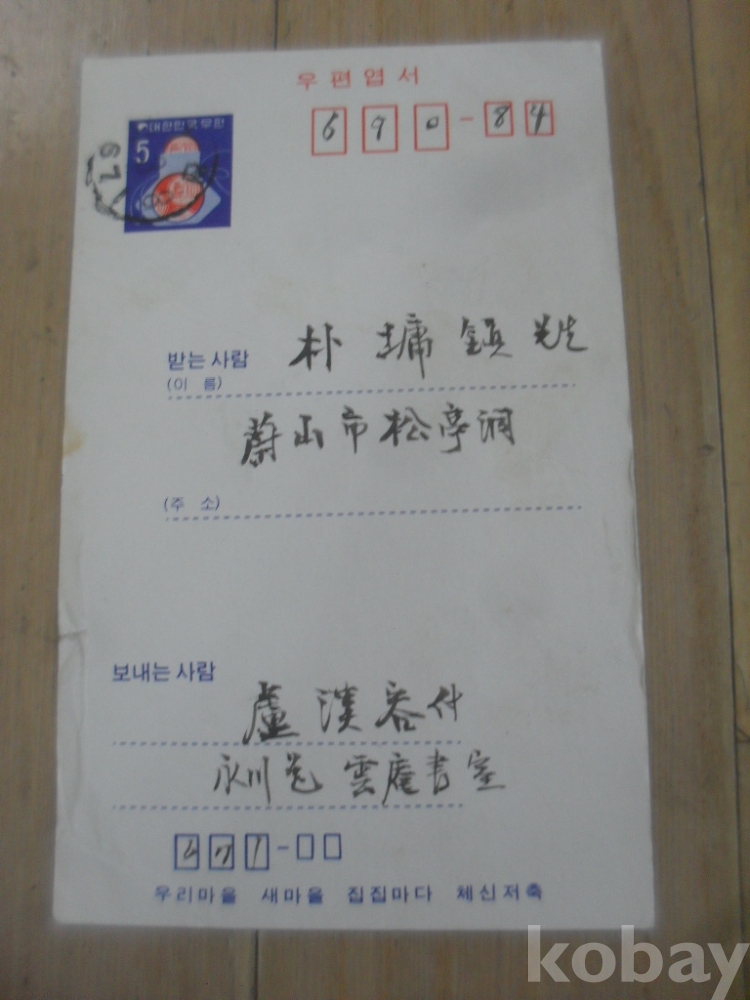 우편엽서
690-84
대한민국우편
5
받는 사람 朴 墉 鎭 先生
(이 름)
蔚山市松亭洞
(주 소)
보내는 사람
盧 漢 容 付
永川邑 雲庵書室
671-
우리마을 새마을 집집마다 체신저축
kobay